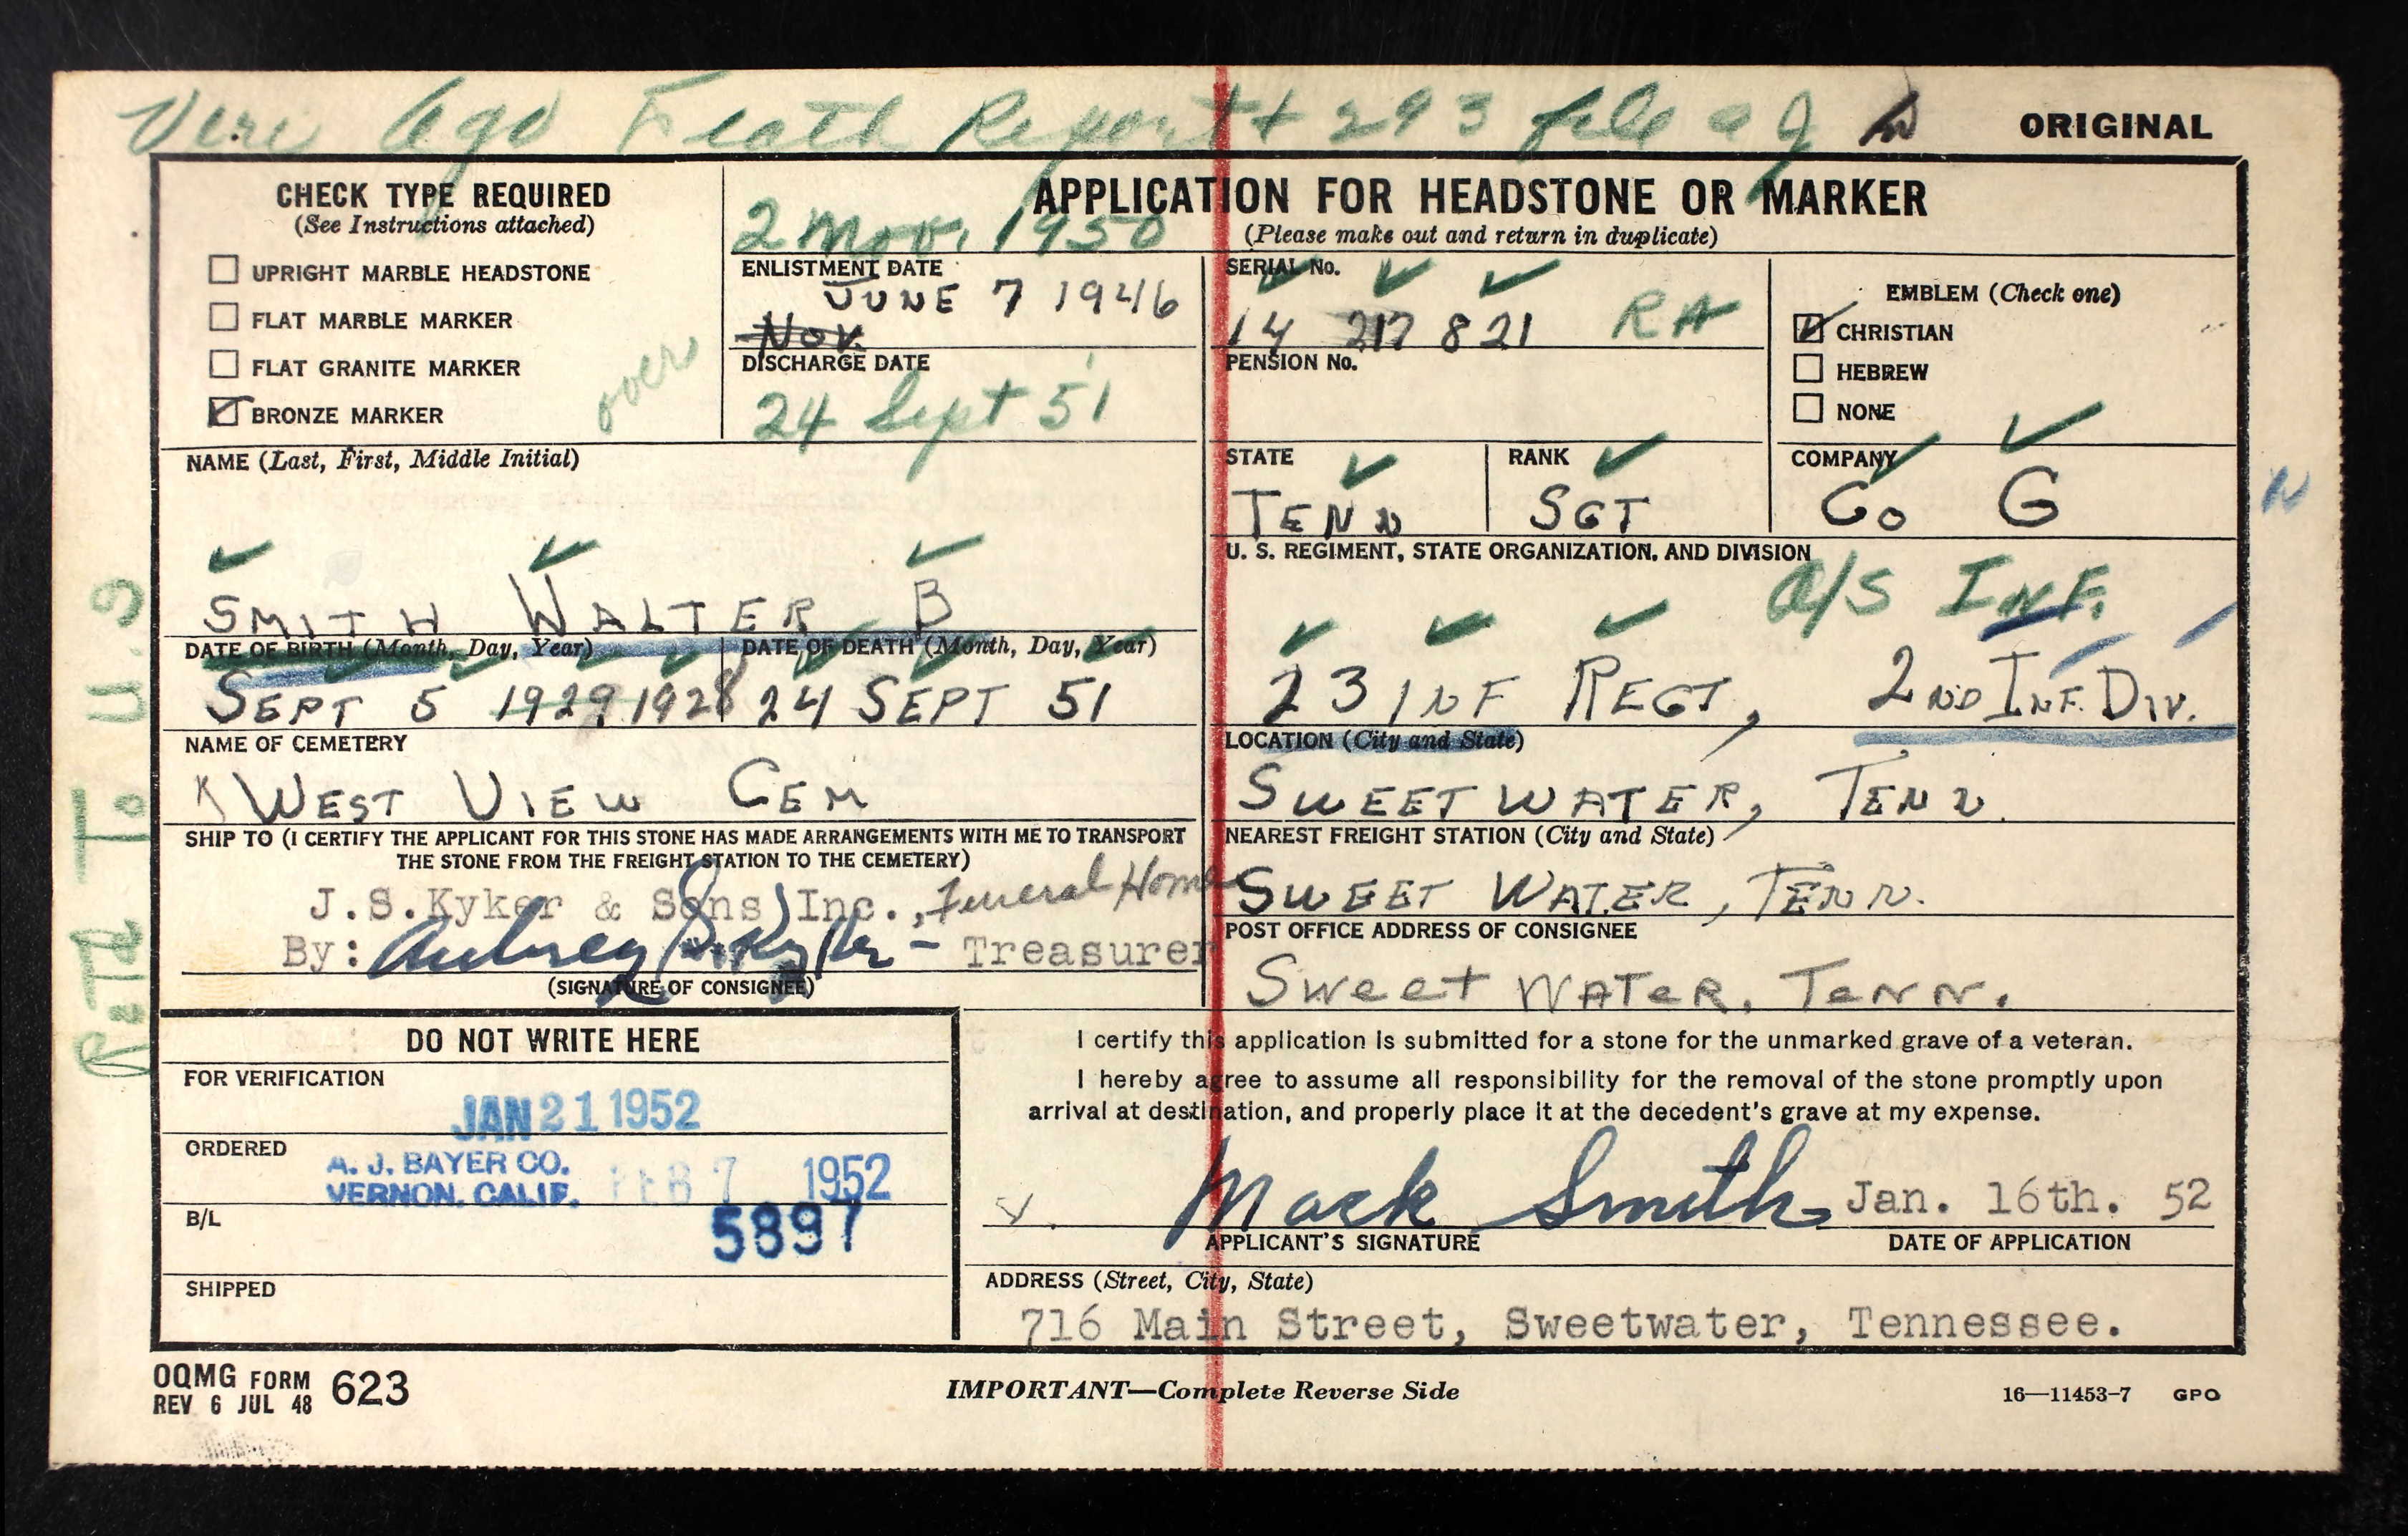 Veri Ago Death Report + 293 file
ORIGINAL
CHECK TYPE REQUIRED
(See Instructions attached)
UPRIGHT MARBLE HEADSTONE
FLAT MARBLE MARKER
FLAT GRANITE MARKER
BRONZE MARKER
over
APPLICATION FOR HEADSTONE OR MARKER
(Please make out and return in duplicate)
2 Nov. 1950
ENLISTMENT DATE
JUNE 7 1946
NOV.
DISCHARGE DATE
24 Sept 51
SERIAL No.
14 217 821 RA
PENSION No.
EMBLEM (Check one)
CHRISTIAN
HEBREW
NONE
NAME (Last, First, Middle Initial)
SMITH WALTER B
STATE
TENN
RANK
SGT
COMPANY
Co G
N
U. S. REGIMENT, STATE ORGANIZATION, AND DIVISION
O/S INF.
23 INF REGT, 2ND INF. DIV.
DATE OF BIRTH (Month, Day, Year)
SEPT 5 1929 1928
DATE OF DEATH (Month, Day, Year)
24 SEPT 51
NAME OF CEMETERY
WEST VIEW CEM
LOCATION (City and State)
SWEET WATER, TENN.
SHIP TO (I CERTIFY THE APPLICANT FOR THIS STONE HAS MADE ARRANGEMENTS WITH ME TO TRANSPORT
THE STONE FROM THE FREIGHT STATION TO THE CEMETERY)
J.S.Kyker & Sons Inc., Funeral Home
By: Aubrey S. Kyker - Treasurer
(SIGNATURE OF CONSIGNEE)
NEAREST FREIGHT STATION (City and State)
SWEET WATER, TENN.
POST OFFICE ADDRESS OF CONSIGNEE
Sweet WATER, TENN.
Retd To U.S
DO NOT WRITE HERE
FOR VERIFICATION
JAN 21 1952
ORDERED
A. J. BAYER CO.
VERNON, CALIF.
FEB 7 1952
B/L
5897
SHIPPED
I certify this application is submitted for a stone for the unmarked grave of a veteran.
I hereby agree to assume all responsibility for the removal of the stone promptly upon
arrival at destination, and properly place it at the decedent's grave at my expense.
Mack Smith Jan. 16th. 52
APPLICANT'S SIGNATURE
DATE OF APPLICATION
ADDRESS (Street, City, State)
716 Main Street, Sweetwater, Tennessee.
OQMG FORM 623
REV 6 JUL 48
IMPORTANT—Complete Reverse Side
16—11453-7 GPO